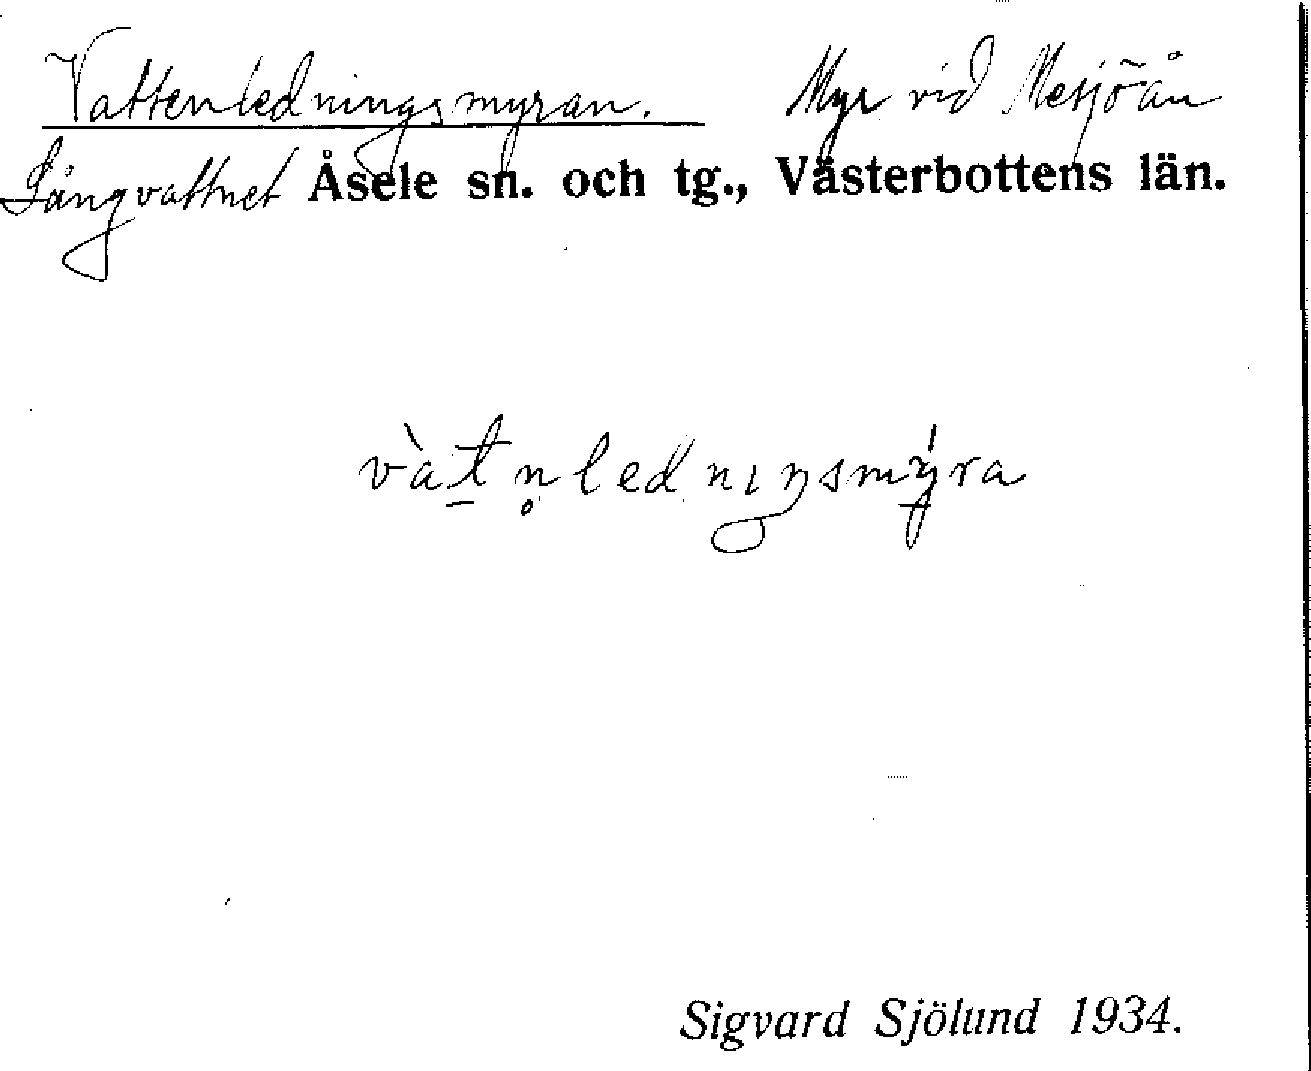 Vattenledningsmyran. Myr vid Mesjöån
Långvattnet Åsele sn. och tg., Västerbottens län.
vàt̲n̥ledniŋsmy̍ra
Sigvard Sjölund 1934.